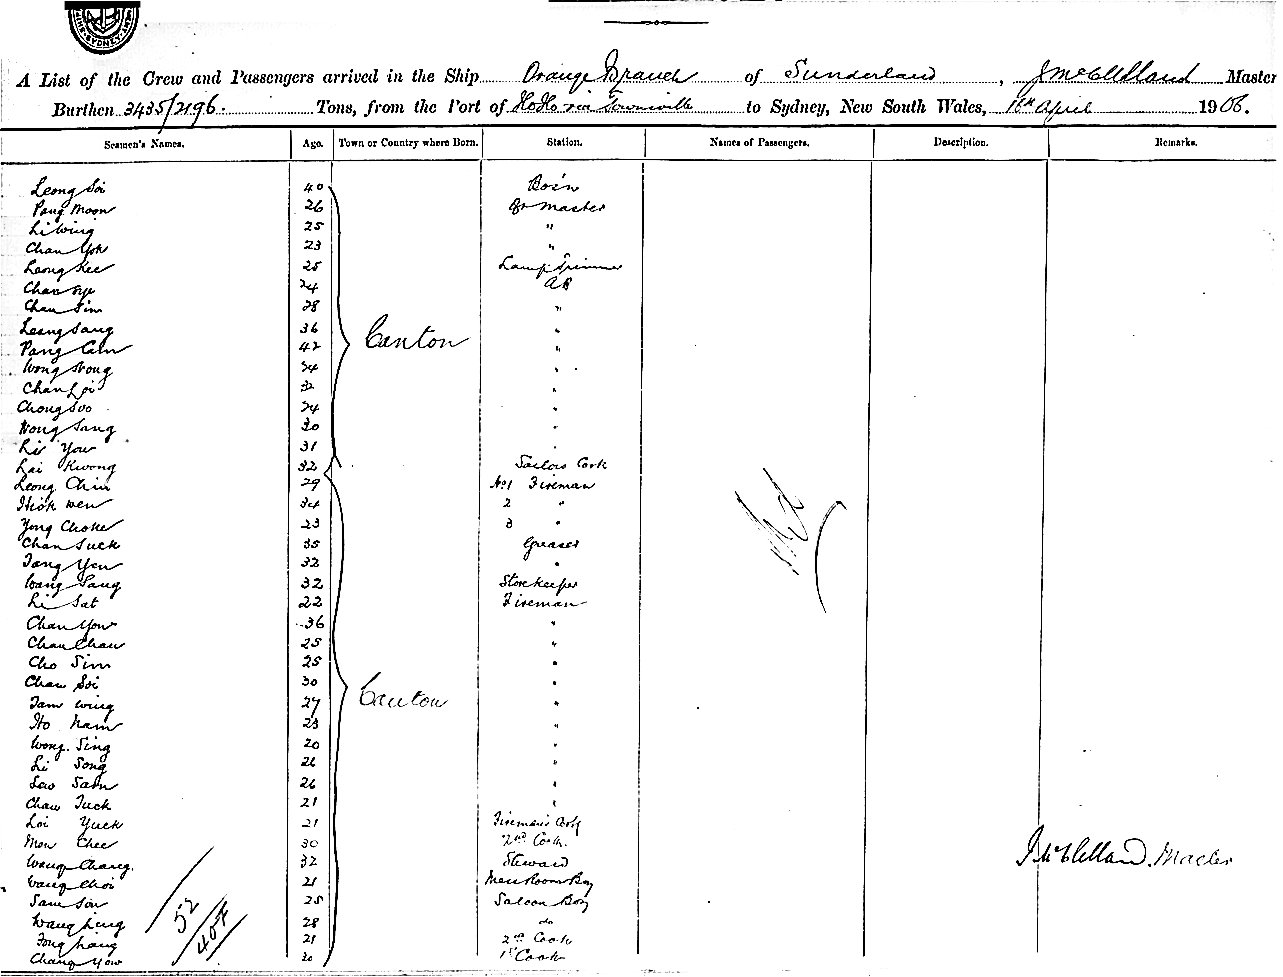 SYDNEY
A List of the Crew and Passengers arrived in the Ship Orange Branch of Sunderland, J McClelland Master
Burthen 3435/2196. Tons, from the Port of IloIlo via Townsville to Sydney, New South Wales, 16th April 1906.
Seamen's Names. Age. Town or Country where Born. Station. Names of Passengers. Description. Remarks.
Leong Soi 40 Bos'n
Pang Moon 26 Qr Master
Li Wing 25 "
Chan Yok 23 "
Leong Kee 25 Lamp Trimmer
Chan 24 AB
Chan Sim 28 "
Leong Sang 36 "
Canton
Pang 42 "
Wong Wong 34 "
Chan Loi 32 "
Chong Soo 34 "
Wong Sang 30 "
Li You 31 "
Lai Kwong 32 Sailors Cook
Leong Chin 29 No 1 Fireman
Hiok Wen 34 2 "
Yong Choke 23 3 "
Chan Suck 35 Greaser
Tang Yen 32 "
Wang Sang 32 Storekeeper
Li Sat 22 Fireman
Chan You 36 "
Chan Chau 25 "
Cho Sim 25 "
Chan Soi 30 "
Canton
Tam Wing 27 "
Ho Nam 23 "
Wong Sing 20 "
Li Song 26 "
Low Sam 26 "
Chan Tuck 21 "
Loi Yuck 21 Fireman's Cook
Mon Chee 30 2nd Cook.
J McClelland, Master
Wang Chang. 32 Steward
Wang Choi 21 Mess Room Boy
Sam Son 25 Saloon Boy
Wang Leng 28 do
Fong Lang 21 2nd Cook
Chang Yow 20 1st Cook
52